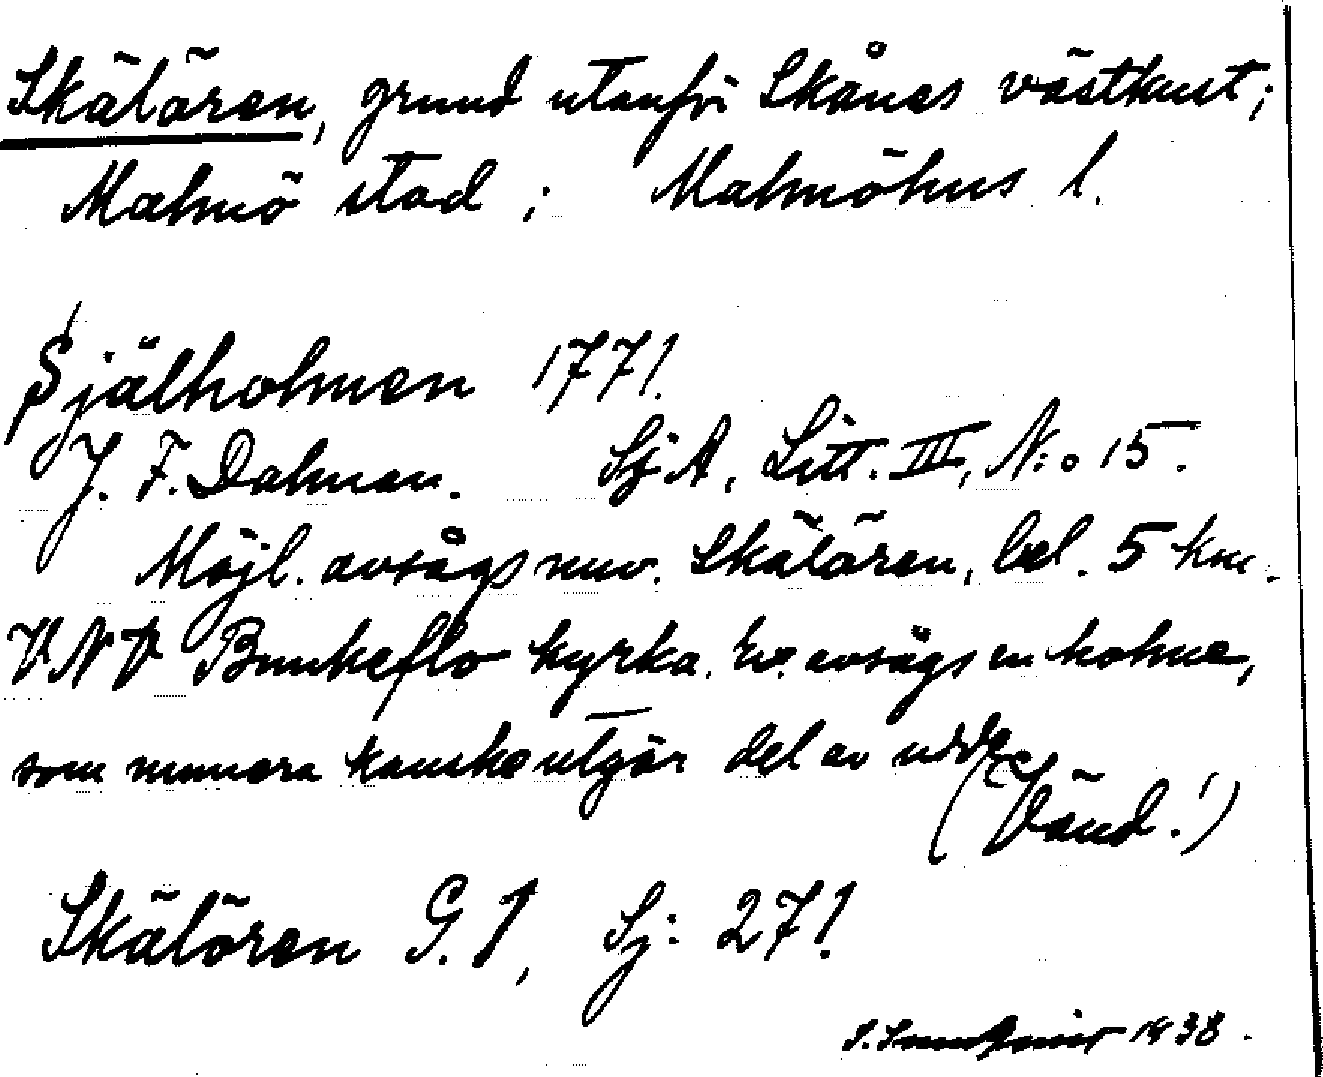 Skälören, grund utanför Skånes västkust;
Malmö stad; Malmöhus l.
Själholmen 1771.
J. F. Dalman. Sj A, Litt. III, N:o 15.
Möjl. avsågs nuv. Skälören, bel. 5 km.
VNV Bunkeflo kyrka. Ev. avsågs en holme,
som numera kanske utgör del av udde
(Vänd!)
Skälören G. 1, Sj: 271.
1938.